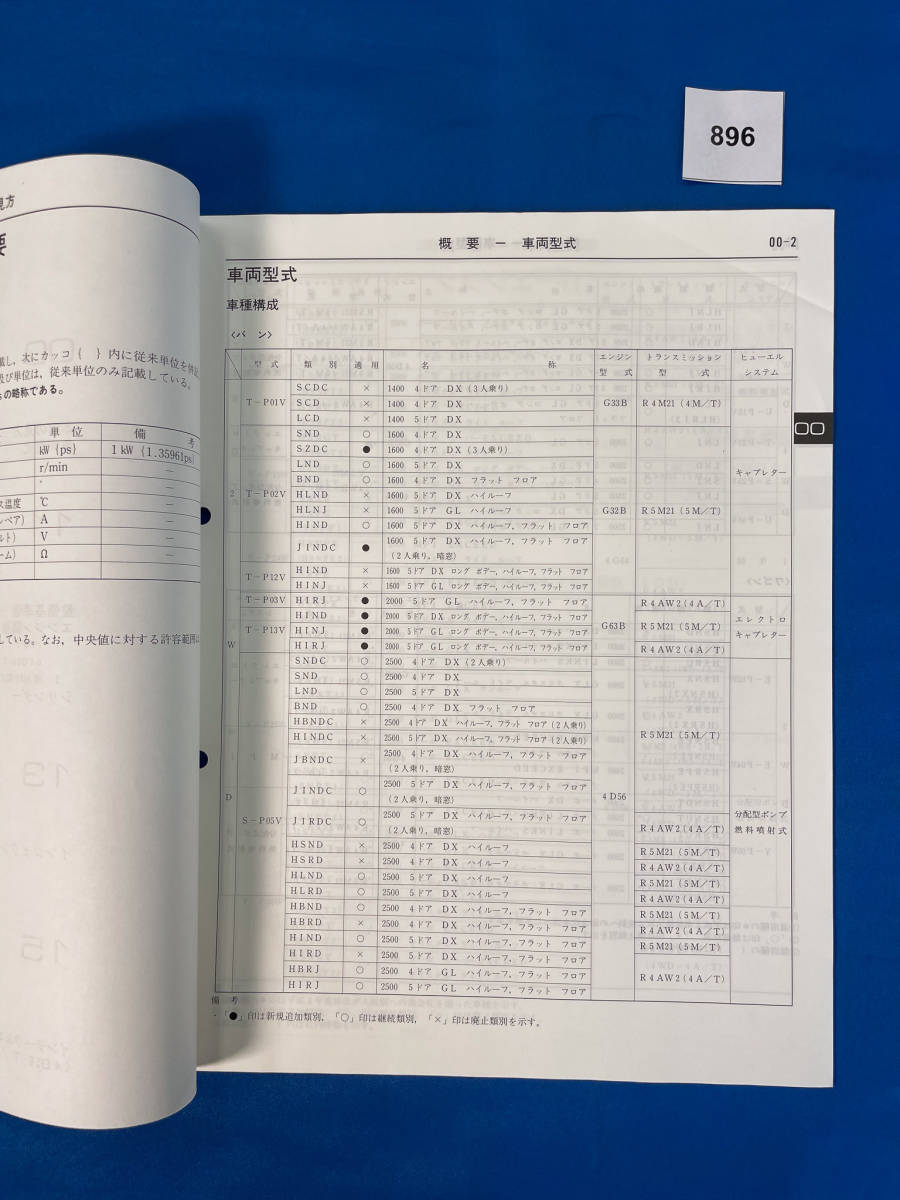 896
見方
要
載し，次にカッコ｛ ｝内に従来単位を併記
及び単位は，従来単位のみ記載している。
sの略称である。
単位 備 考
kW {ps} 1 kW {1.35961ps}
r/min —
ス温度 ℃ —
A —
V —
Ω —
している。なお，中央値に対する許容範囲は
概 要 － 車両型式 00-2
車両型式
車種構成
〈バ ン〉
型 式 類 別 適 用 名 称 エンジン型 式 トランスミッション型 式 ヒューエルシステム
2 W D
T－P01V SCDC × 1400 4ドア DX (3人乗り) G33B R4M21 (4M/T) キャブレター
SCD × 1400 4ドア DX
LCD × 1400 5ドア DX
T－P02V SND ○ 1600 4ドア DX G32B R5M21 (5M/T)
SZDC ● 1600 4ドア DX (3人乗り)
LND ○ 1600 5ドア DX
BND ○ 1600 4ドア DX フラット フロア
HLND × 1600 5ドア DX ハイルーフ
HLNJ × 1600 5ドア GL ハイルーフ
HIND ○ 1600 5ドア DX ハイルーフ，フラット フロア
JINDC ● 1600 5ドア DX ハイルーフ，フラット フロア
(2人乗り，暗窓)
T－P12V HIND × 1600 5ドア DX ロング ボデー，ハイルーフ，フラット フロア
HINJ × 1600 5ドア GL ロング ボデー，ハイルーフ，フラット フロア
T－P03V HIRJ ● 2000 5ドア GL ハイルーフ，フラット フロア G63B R4AW2 (4A/T) エレクトロキャブレター
T－P13V HIND ● 2000 5ドア DX ロング ボデー，ハイルーフ，フラット フロア R5M21 (5M/T)
HINJ ● 2000 5ドア GL ロング ボデー，ハイルーフ，フラット フロア
HIRJ ● 2000 5ドア GL ロング ボデー，ハイルーフ，フラット フロア R4AW2 (4A/T)
S－P05V SNDC ○ 2500 4ドア DX (2人乗り) 4D56 R5M21 (5M/T) 分配型ポンプ燃料噴射式
SND ○ 2500 4ドア DX
LND ○ 2500 5ドア DX
BND ○ 2500 4ドア DX フラット フロア
HBNDC × 2500 4ドア DX ハイルーフ，フラット フロア (2人乗り)
HINDC × 2500 5ドア DX ハイルーフ，フラット フロア (2人乗り)
JBNDC × 2500 4ドア DX ハイルーフ，フラット フロア
(2人乗り，暗窓)
JINDC ○ 2500 5ドア DX ハイルーフ，フラット フロア
(2人乗り，暗窓)
JIRDC ○ 2500 5ドア DX ハイルーフ，フラット フロア R4AW2 (4A/T)
(2人乗り，暗窓)
HSND × 2500 4ドア DX ハイルーフ R5M21 (5M/T)
HSRD × 2500 4ドア DX ハイルーフ R4AW2 (4A/T)
HLND ○ 2500 5ドア DX ハイルーフ R5M21 (5M/T)
HLRD ○ 2500 5ドア DX ハイルーフ R4AW2 (4A/T)
HBND ○ 2500 4ドア DX ハイルーフ，フラット フロア R5M21 (5M/T)
HBRD × 2500 4ドア DX ハイルーフ，フラット フロア R4AW2 (4A/T)
HIND ○ 2500 5ドア DX ハイルーフ，フラット フロア R5M21 (5M/T)
HIRD × 2500 5ドア DX ハイルーフ，フラット フロア R4AW2 (4A/T)
HBRJ ○ 2500 4ドア GL ハイルーフ，フラット フロア
HIRJ ○ 2500 5ドア GL ハイルーフ，フラット フロア
備 考
・「●」印は新規追加類別，「○」印は継続類別，「×」印は廃止類別を示す。
00